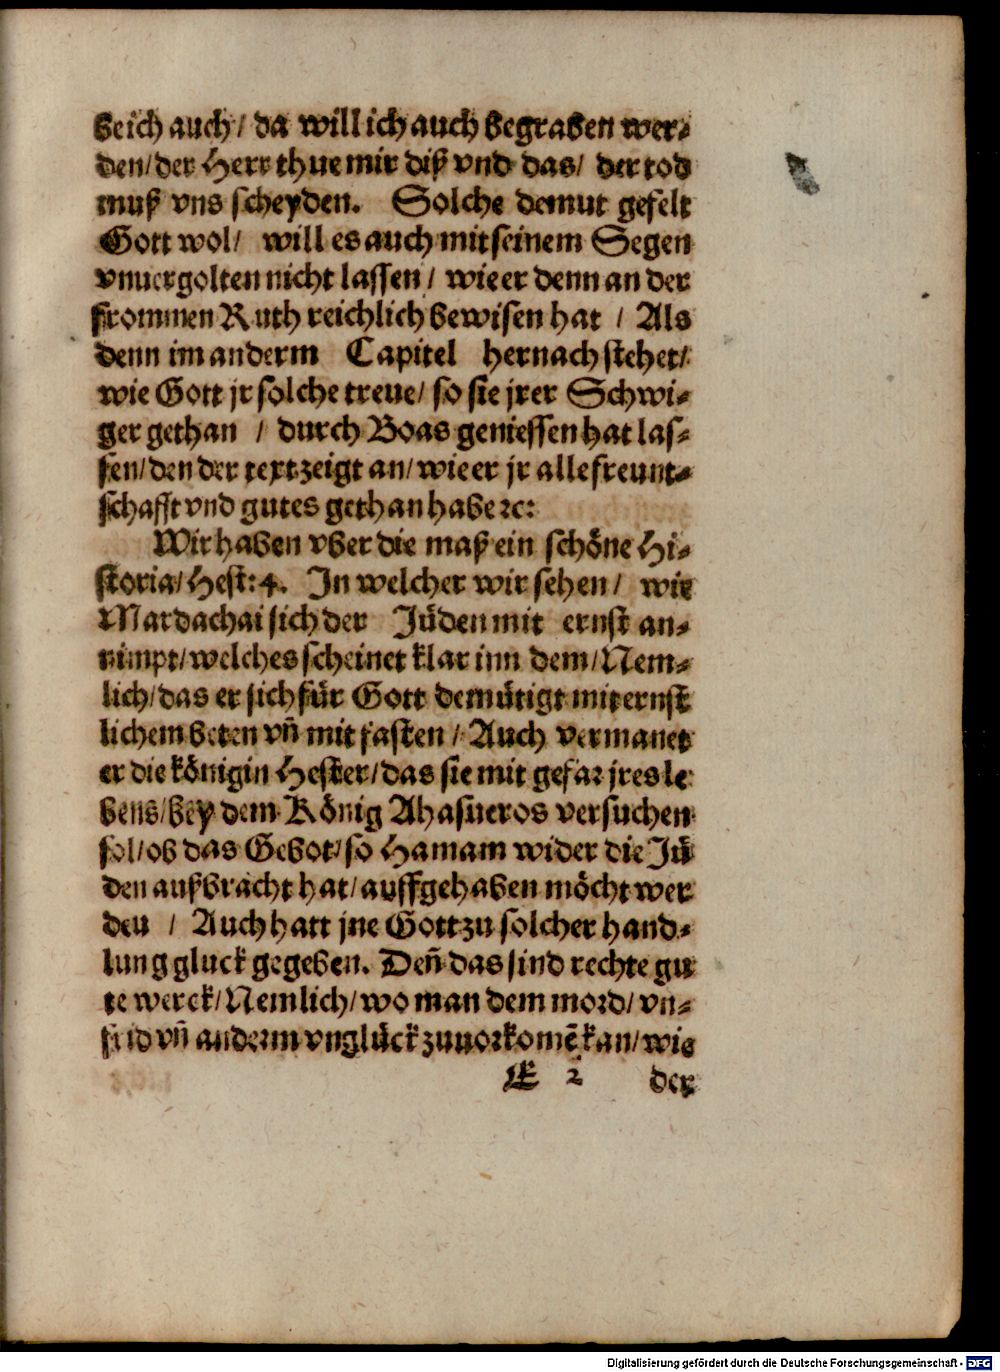 be ich auch / da will ich auch begraben wer⸗
den / der Herr thue mir diß vnd das / der tod
muß vns scheyden. Solche demut gefelt
Gott wol / will es auch mit seinem Segen
vnuergolten nicht lassen / wie er denn an der
frommen Ruth reichlich bewisen hat / Als
denn im anderm Capitel hernach stehet /
wie Gott jr solche treue / so sie jrer Schwi⸗
ger gethan / durch Boas geniessen hat las⸗
sen / den der text zeigt an / wie er jr alle freunt⸗
schafft vnd gutes gethan habe ꝛc:
Wir haben vber die maß ein schöne Hi⸗
storia / Hest: 4. In welcher wir sehen / wie
Mardachai sich der Jüden mit ernst an⸗
nimpt / welches scheinet klar inn dem / Nem⸗
lich / das er sich für Gott demütigt mit ernst
lichem beten vñ mit fasten / Auch vermanet
er die königin Hester / das sie mit gefar jres le
bens / bey dem König Ahasueros versuchen
sol / ob das Gebot / so Hamam wider die Jü
den außbracht hat / auffgehaben möcht wer
den / Auch hatt jne Gott zu solcher hand⸗
lung gluck gegeben. Deñ das sind rechte gu
te werck / Nemlich / wo man dem mord / vn⸗
frid vñ anderm vnglück zuuorkomẽ kan / wie
E 2 der
Digitalisierung gefördert durch die Deutsche Forschungsgemeinschaft - DFG